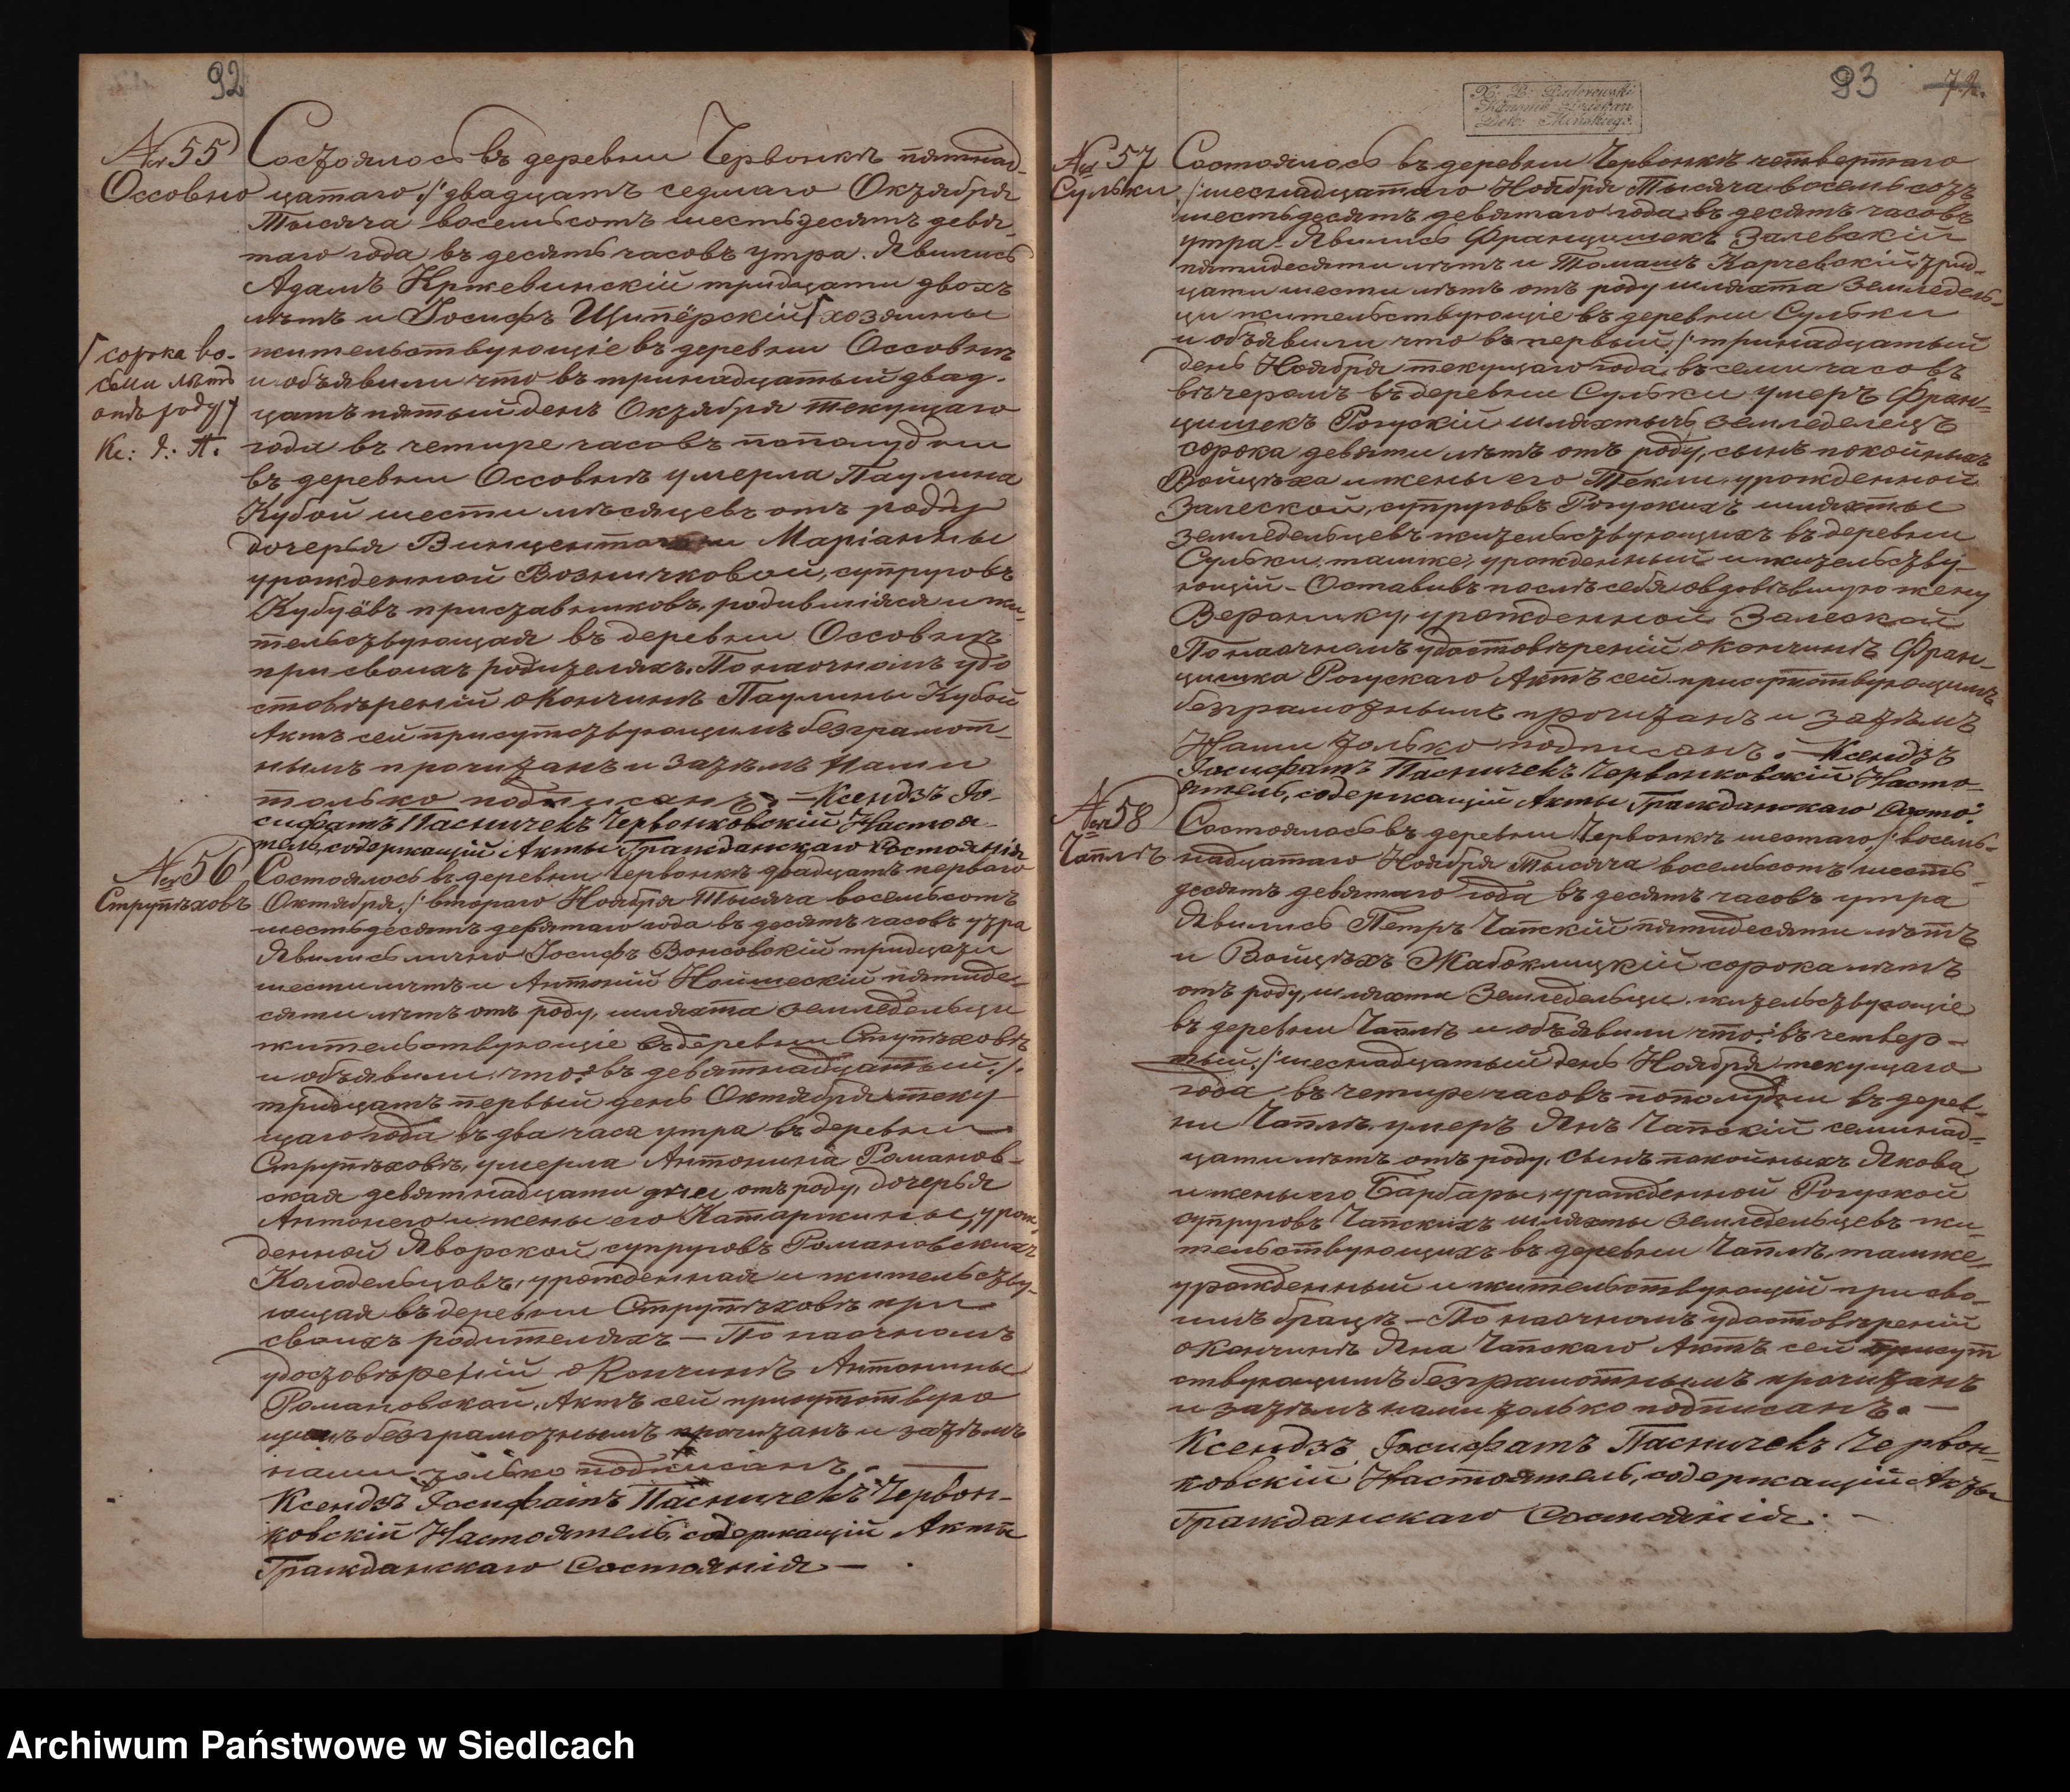 92
№ 55
Оссовно
Состоялось въ деревни Червонкѣ пятнад-
цатаго /: двадцать седмаго Октября
Тысяча восемьсотъ шестьдесятъ девя-
таго года въ десять часовъ утра. Явились
Адамъ Кржевинскій тридцати двохъ
лѣтъ и Іосифъ Щипёрскій ⌈ хозяины
⌈ сорка во-
сьми лѣтъ
отъ роду /
Кс: І: П.
жительствующіе въ деревни Оссовнѣ
и объявили что въ тринадцатый двад-
цать пятый день Октября текущаго
года въ четире часовъ пополудни
въ деревни Оссовнѣ умерла Паулина
Кубой шести мѣсяцевъ отъ роду
дочерья Винцентаго и Маріанны
урожденной Возничковой, супруговъ
Кубуёвъ приставниковъ, родившаяся и жи-
тельствующая въ деревни Оссовнѣ
при своихъ родителяхъ. По наочномъ удо
стовѣреній о Кончинѣ Паулины Кубой
Актъ сей присутствующимъ безграмот-
нымъ прочитанъ и затѣмъ Нами
только подписанъ. — Ксендзъ Іо-
сифатъ Пасничекъ Червонковскій Настоя-
тель, содержащій Акты Гражданскаго Состоянія
№ 56
Струпѣховъ
Состоялось въ деревни Червонкѣ двадцать перваго
Октября /: втораго Ноября Тысяча восемьсотъ
шестьдесятъ девятаго года въ десять часовъ утра
Явились лично Іосифъ Вонсовскій тридцати
шести лѣтъ и Антоній Ноишескій пятиде-
сяти лѣтъ отъ роду, шляхта земледельци
жительствующіе въ деревни Струпѣховѣ
и объявили что: въ девятнадцатый /:
тридцать первый день Октября теку
щаго года въ два часа утра въ деревни
Струпѣховѣ, умерла Антонина Романов-
ская девятнадцати дней отъ роду, дочерья
Антонего и жены его Катаржины, урож-
денной Яворской супруговъ Романовскихъ
Колодельцовъ, урожденная и жительству-
ющая въ деревни Струпѣховѣ при
своихъ родителяхъ — По наочномъ
удостовѣреній о Кончинѣ Антонины
Романовской, Актъ сей присутствую
щимъ безграмотнымъ прочитанъ и затѣмъ
нами только подписанъ. —
Ксендзъ Іосифатъ Пасничекъ Червон-
ковскій Настоятель, содержащій Акты
Гражданскаго Состоянія —
93 72.
X. B.
Kanonik Dziekan
Dek: Mińskiego.
№ 57
Сульки
Состоялось въ деревни Червонкѣ четвертаго
/: шеснадцатаго Ноября Тысяча восемьсотъ
шестьдесятъ девятаго года въ десять часовъ
утра. Явились Францишекъ Залевскій
пятидесяти лѣтъ и Томашъ Карчевскій трид-
цати шести лѣтъ отъ роду шляхта Земледель-
ци жительствующіе въ деревни Сульки
и объявили что въ первый /: тринадцатый
день Ноября текущаго года въ семи часовъ
вѣчеромъ въ деревни Сульки умеръ Фран-
цишекъ Рогускій шляхтычь земледелецъ
сорока девяти лѣтъ отъ роду, сынъ покойныхъ
Войцѣха и жены его Текли урожденной
Залеской, супруговъ Рогускихъ шляхты
земледельцевъ жительствующихъ въ деревни
Сульки, тамже урожденный и жительству-
ющій — Оставивъ послѣ себя овдовѣвшую жену
Веронику, урожденной Залеской
По наочномъ удостовѣреній о Кончинѣ Фран-
цишка Рогускаго Актъ сей присутствующимъ
безграмотнымъ прочитанъ и затѣмъ
Нами только подписанъ. — Ксендзъ
Іосифатъ Пасничекъ Червонковскій Насто-
ятель, содержащій Акты Гражданскаго Состо:
№ 58
Чаплѣ
Состоялось въ деревни Червонкѣ шестаго /: восемь-
надцатаго Ноября Тысяча восемьсотъ шесть-
десятъ девятаго года въ десять часовъ утра
Явились Петръ Чапскій пятидесяти лѣтъ
и Войцѣхъ Жабоклицкій сорока лѣтъ
отъ роду, шляхта Земледельци жительствующіе
въ деревни Чаплѣ и объявили что: въ четвер-
тый /: шеснадцатый день Ноября текущаго
года въ четире часовъ пополудни въ дерев-
ни Чаплѣ, умеръ Янъ Чапскій семинад-
цати лѣтъ отъ роду, сынъ покойныхъ Якова
и жены его Барбары, урожденной Рогуской
супруговъ Чапскихъ шляхты Земледельцевъ жи-
тельствующихъ въ деревни Чаплѣ, тамже
урожденный и жительствующій при сво-
имъ братѣ — По наочномъ удостовѣреній
о Кончинѣ Яна Чапскаго Актъ сей присут
ствующимъ безграмотнымъ прочитанъ
и затѣмъ нами только подписанъ. —
Ксендзъ Іосифатъ Пасничекъ Червон-
ковскій Настоятель, содержащій Акты
Гражданскаго Состоянія. —
Archiwum Państwowe w Siedlcach